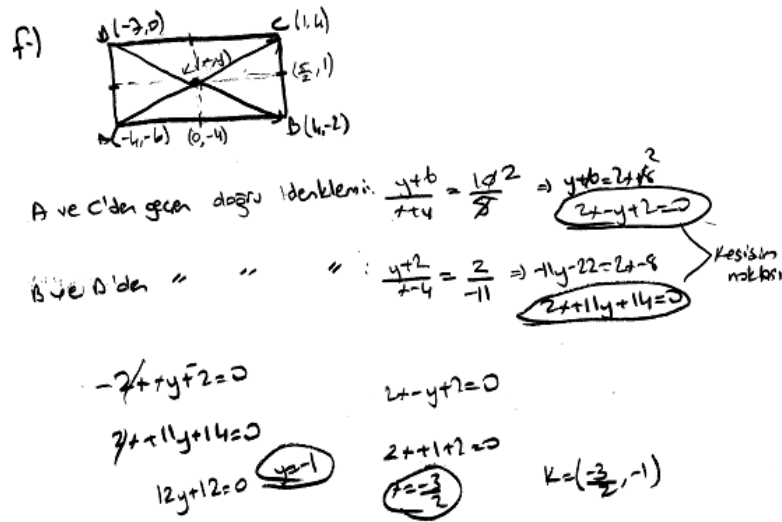 f-)
D(-7,0) C(1,4)
K(x,y) (5/2, 1)
A(-4,-6) (0,-4) B(4,-2)
A ve C'den geçen doğru denklemi: y+6/x+4 = 10/5 2 ⇒ y+6=2x+8 2
2x-y+2=0
B ve D'den " " " : y+2/x-4 = 2/-11 ⇒ -11y-22=2x-8
2x+11y+14=0
Kesişim noktası
-2x+y-2=0 2x-y+2=0
2x+11y+14=0 2x+1+2=0
12y+12=0 y=-1 x=-3/2 K=(-3/2, -1)